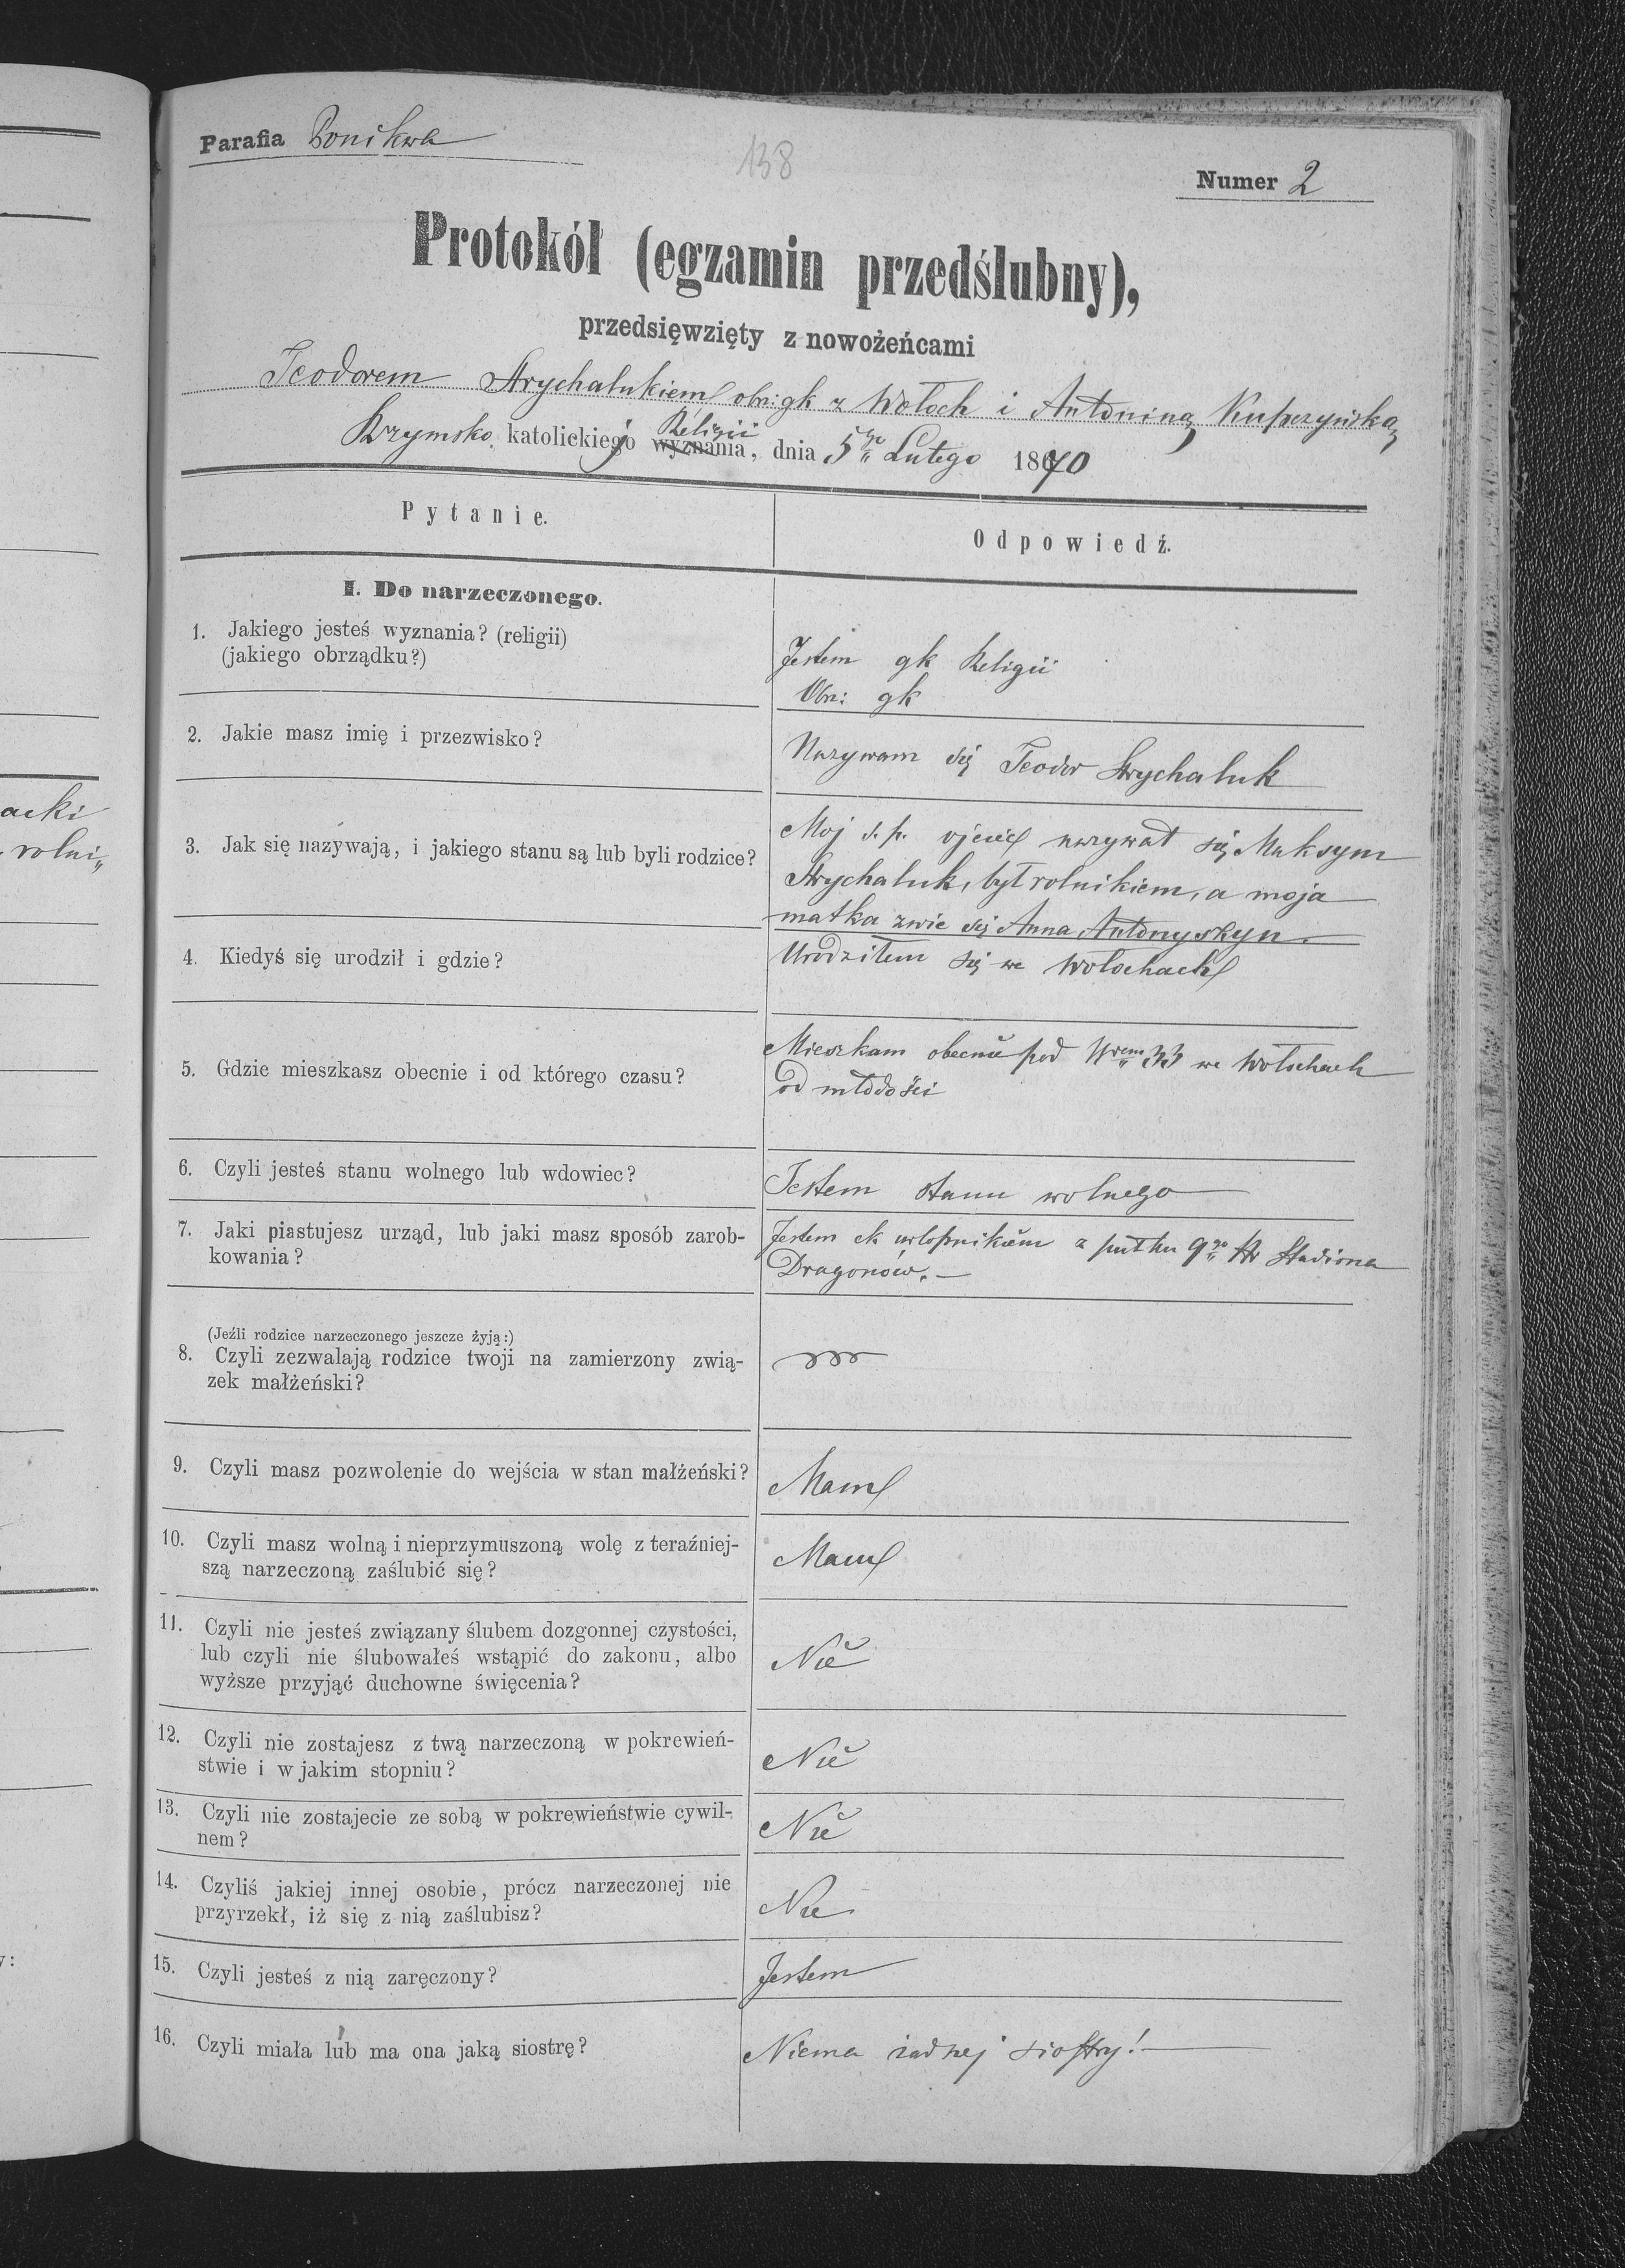 acki
rolni„
Parafia Ponikwa
138
Numer 2
Protokół (egzamin przedślubny),
przedsięwzięty z nowożeńcami
Teodorem Strychalukiem obrz: gk z Wołoch i Antoniną Kupczyńską
Rzymsko katolickiej Religii wyznania, dnia 5go Lutego 1870
Pytanie.
Odpowiedź.
I. Do narzeczonego.
1. Jakiego jesteś wyznania? (religii)
(jakiego obrządku?)
Jestem gk Religii
Obrz: gk
2. Jakie masz imię i przezwisko?
Nazywam się Teodor Strychaluk
3. Jak się nazywają, i jakiego stanu są lub byli rodzice?
Moj ś. p. ojciec nazywał się Maksym
Strychaluk, był rolnikiem, a moja
matka zwie się Anna Antonyszyn.
4. Kiedyś się urodził i gdzie?
Urodziłem się we Wołochach
5. Gdzie mieszkasz obecnie i od którego czasu?
Mieszkam obecnie pod Nrem 33 we Wołochach
od młodości
6. Czyli jesteś stanu wolnego lub wdowiec?
Jestem stanu wolnego
7. Jaki piastujesz urząd, lub jaki masz sposób zarob-
kowania?
Jestem ck urlopnikiem z pułku 9go Hr Stadiona
Dragonów.
(Jeźli rodzice narzeczonego jeszcze żyją:)
8. Czyli zezwalają rodzice twoji na zamierzony zwią-
zek małżeński?
9. Czyli masz pozwolenie do wejścia w stan małżeński?
Mam
10. Czyli masz wolną i nieprzymuszoną wolę z teraźniej-
szą narzeczoną zaślubić się?
Mam
11. Czyli nie jesteś związany ślubem dozgonnej czystości,
lub czyli nie ślubowałeś wstąpić do zakonu, albo
wyższe przyjąć duchowne święcenia?
Nie
12. Czyli nie zostajesz z twą narzeczoną w pokrewień-
stwie i w jakim stopniu?
Nie
13. Czyli nie zostajecie ze sobą w pokrewieństwie cywil-
nem?
Nie
14. Czyliś jakiej innej osobie, prócz narzeczonej nie
przyrzekł, iż się z nią zaślubisz?
Nie
15. Czyli jesteś z nią zaręczony?
Jestem
16. Czyli miała lub ma ona jaką siostrę?
Niema żadnej siostry!